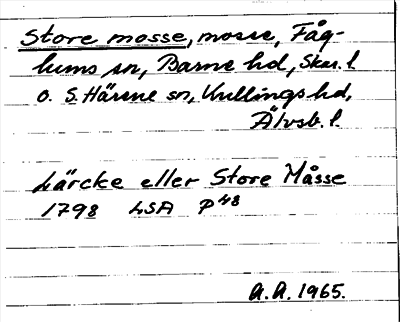 Store mosse, mosse, Fåg-
lums sn, Barne hd, Skar. l
o. S. Härene sn, Kullings hd,
Älvsb. l.
Lärcke eller Store Måsse
1798 LSA P48
A.A. 1965.